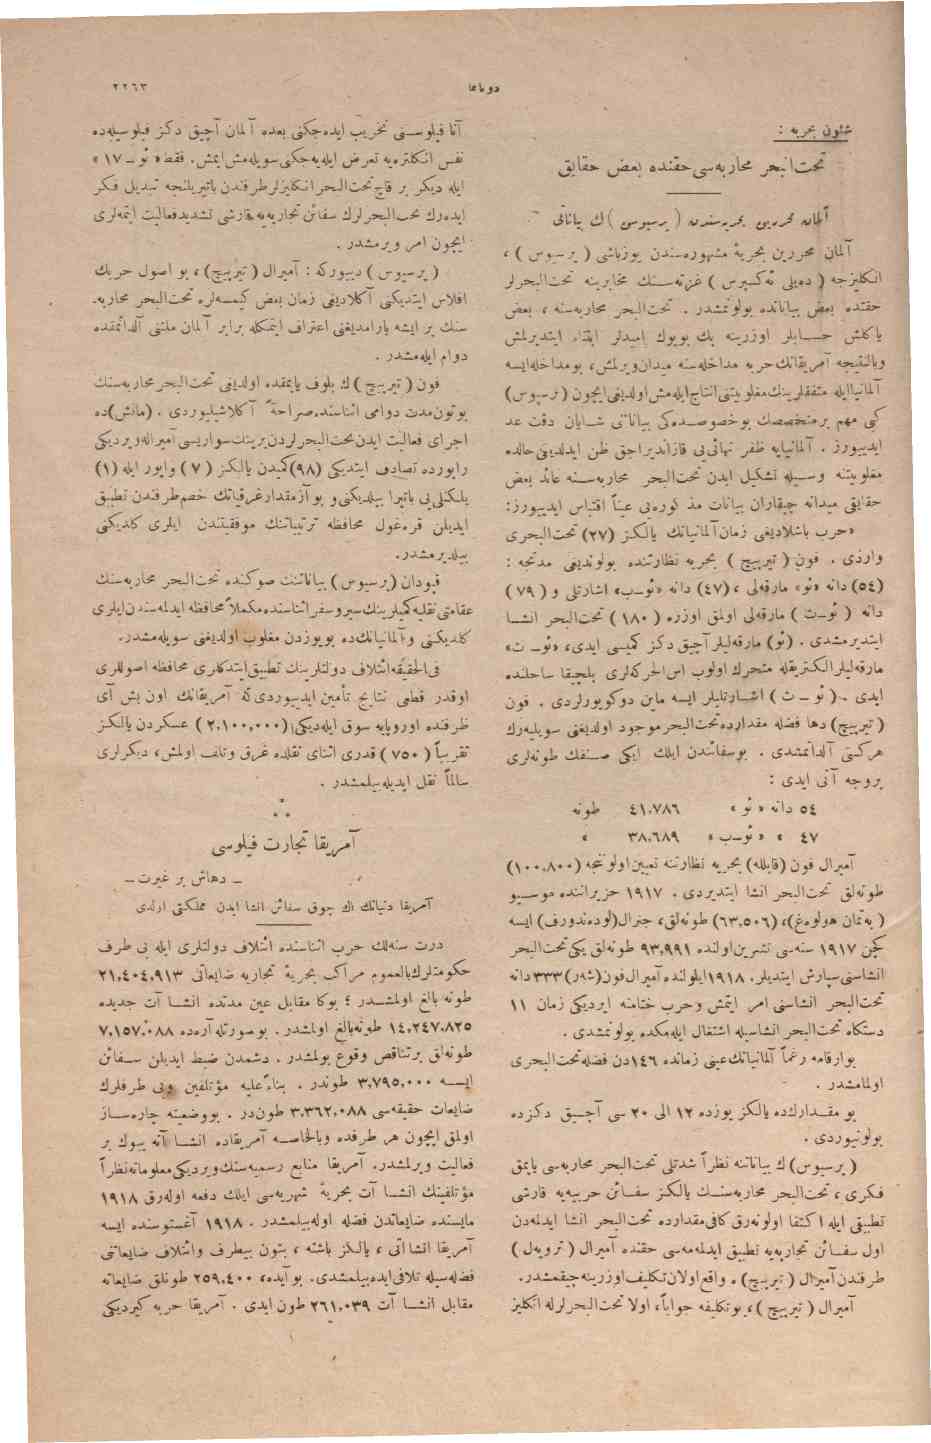 دوناما
٢٢٦٣
شئون بحریه :
تحت‌البحر محاربه‌سی حقنده بعض حقایق
آلمان محررین بحریه‌سندن ( پرسیوس ) ك بیاناتی
آلمان محررین بحریهٔ مشهوره‌سندن یوزباشی ( پرسیوس ) ،
انكلیزجه ( ده‌یلی ئه‌كسپرس ) غزته‌سنك مخابرینه تحت‌البحرلر
حقنده بعض بیاناتده بولونمشدر . تحت‌البحر محاربه‌سنه ، بعض
یاكلش حسابلر اوزرینه پك بویوك امیدلر ابتناء ایتدیرلمش
وبالنتیجه آمریقانك حربه مداخله‌سنه میدان ویرلمش، بومداخله‌ایسه
آلمانیاایله متفقلرینك مغلوبیتنی انتاج ایله‌مش اولدیغی ایچون (پرسیوس)
كبی مهم برمتخصصك بوخصوصده‌كی بیاناتی شایان دقت عد
ایدییورز . آلمانیایه ظفر نهائی‌یی قازاندیراجق ظن ایدلدیكی‌حالده
مغلوبیتنه وسیله تشكیل ایدن تحت‌البحر محاربه‌سنه عائد بعض
حقایقی میدانه چیقاران بیانات مذكوره‌یی عیناً اقتباس ایدییورز:
«حرب باشلادیغی زمان آلمانیانك یالكز (٢٧) تحت‌البحری
واردی . فون ( تیرپیچ ) بحریه نظارتنده بولوندیغی مدتجه :
(٥٤) دانه «ئو» مارقه‌لی ، (٤٧) دانه «ئوـب» اشارتلی و ( ٧٩ )
دانه ( ئوـت ) مارقه‌لی اولمق اوزره ( ١٨٠ ) تحت‌البحر انشا
ایتدیرمشدی . (ئو) مارقه‌لیلر آچیق دكز كمیسی ایدی، «ئوـ ب»
مارقه‌لیلر الكتریقله متحرك اولوب اس‌الحركه‌لری بلچیقا ساحلنده
ایدی . ( ئو ـ ت ) اشارتلیلر ایسه ماین دوكویورلردی . فون
(تیرپیچ) دها فضله مقدارده تحت‌البحر موجود اولدیغنی سویلیه‌رك
هركسی آلداتمشدی . بوسفائندن ایلك ایكی صنفك طونه‌لری
بروجه آتی ایدی :
٥٤ دانه « ئو » ٤١,٧٨٦ طونه
٤٧ » « ئوـب » ٣٨,٦٨٩ »
آمیرال فون (قاپلله) بحریه نظارتنه تعیین اولونجه (١٠٠,٨٠٠)
طونه‌لق تحت‌البحر انشا ایتدیردی . ١٩١٧ حزیراننده موسیو
( په‌تمان هولوه‌غ)، (٦٣,٥٠٦) طونه‌لق، جنرال(لوده‌ندورف) ایسه
كچن ١٩١٧ سنه‌سی تشرین‌اولنده ٩٣,٩٩١ طونه‌لق یكی تحت‌البحر
انشاسنی سپارش ایتدیلر. ١٩١٨ ایلولنده آمیرال فون(شه‌ر)٣٣٣دانه
تحت‌البحر انشاسنی امر ایتمش وحرب ختامنه ایردیكی زمان ١١
دستكاه تحت‌البحر انشاسیله اشتغال ایله‌مكده بولونمشدی .
بوارقامه رغماً آلمانیانك عینی زمانده ١٤٦دن فضله تحت‌البحری
اولمامشدر .
بو مقدارك‌ده یالكز یوزده ١٢ الی ٢٠ سی آچیق دكزده
بولونیوردی .
(پرسیوس) ك بیاناتنه نظراً شدتلی تحت‌البحر محاربه‌سی یاپمق
فكری ، تحت‌البحر محاربه‌سنك یالكز سفائن حربیه‌یه قارشی
تطبیقی ایله اكتفا اولونه‌رق كافی مقدارده تحت‌البحر انشا ایدلمه‌دن
اول سفائن تجاریه‌یه تطبیق ایدلمه‌مه‌سی حقنده آمیرال ( تروپه‌ل )
طرفندن آمیرال ( تیرپیچ ) ه واقع اولان تكلیف اوزرینه چیقمشدر.
آمیرال ( تیرپیچ ) ، بوتكلیفه جواباً، اولا تحت‌البحرلرله انكلیز
آنا فیلوسنی تخریب ایده‌جكنی بعده آلمان آچیق دكز فیلوسیله‌ده
نفس انكلتره‌یه تعرض ایله‌یه‌جكی سویله‌مش ایمش. فقط « ئو ـ ١٧ »
ایله دیكر بر قاچ تحت‌البحر انكلیزلر طرفندن باتیریلنجه تبدیل فكر
ایده‌رك تحت‌البحرلرك سفائن تجاریه‌یه قارشی تشدید فعالیت ایتمه‌لری
ایچون امر ویرمشدر .
( پرسیوس ) دییوركه : آمیرال ( تیرپیچ) ، بو اصول حربك
افلاس ایتدیكنی آكلادیغی زمان بعض كیمسه‌لره تحت‌البحر محاربه‌ـ
سنك بر ایشه یارامدیغنی اعتراف ایتمكله برابر آلمان ملتنی آلداتمقده
دوام ایله‌مشدر .
فون ( تیرپیچ ) ك بلوف یاپمقده اولدیغی تحت‌البحر محاربه‌سنك
بوتون مدت دوامی اثناسنده صراحةً آكلاشیلیوردی . (مانش)ده
اجرای فعالیت ایدن تحت‌البحرلردن برینك سواریسی آمیراله ویردیكی
راپورده تصادف ایتدیكی (٩٨) كمیدن یالكز ( ٧ ) واپور ایله (١)
یلكنلی‌یی باتیرا بیلدیكنی و بو آز مقدار غرقیاتك خصم طرفندن تطبیق
ایدیلن قره‌غول محافظه ترتیباتنك موفقیتندن ایلری كلدیكنی
بیلدیرمشدر.
قپودان (پرسیوس) بیاناتنك صوكنده تحت‌البحر محاربه‌سنك
عقامتی نقلیه كمیلرینك سیروسفر اثناسنده مكملاً محافظه ایدلمه‌سندن ایلری
كلدیكنی و آلمانیانك‌ده بویوزدن مغلوب اولدیغنی سویله‌مشدر.
فی‌الحقیقه ائتلاف دولتلرینك تطبیق ایتدكلری محافظه اصوللری
اوقدر قطعی نتایج تأمین ایدییوردی كه آمریقانك اون بش آی
ظرفنده اوروپایه سوق ایله‌دیكی (٢,١٠٠,٠٠٠ ) عسكردن یالكز
تقریباً ( ٧٥٠ ) قدری اثنای نقلده غرق وتلف اولمش، دیكرلری
سالماً نقل ایدیله‌بیلمشدر .
آمریقا تجارت فیلوسی
ـ دهاش بر غیرت ـ
آمریقا دنیانك اك چوق سفائن انشا ایدن مملكتی اولدی
درت سنه‌لك حرب اثناسنده ائتلاف دولتلری ایله بی طرف
حكومتلرك بالعموم مراكب بحریهٔ تجاریه ضایعاتی ٢١,٤٠٤,٩١٣
طونه بالغ اولمشدر ؛ بوكا مقابل عین مدتده انشاآت جدیده
١٤,٢٤٧,٨٢٥ طونه بالغ اولمشدر . بوصورتله آره‌ده ٧,١٥٧,٠٨٨
طونه‌لق بر تناقص وقوع بولمشدر . دشمندن ضبط ایدیلن سفائن
ایسه ٣,٧٩٥,٠٠٠ طوندر . بناءً علیه مؤتلفین وبی طرفلرك
ضایعات حقیقیه‌سی ٣,٣٦٢,٠٨٨ طون‌در . بووضعیته چاره‌ساز
اولمق ایچون هر طرفده وبالخاصه آمریقاده انشاآته بیوك بر
فعالیت ویرلمشدر. آمریقا منابع رسمیه‌سنك ویردیكی معلوماته نظراً
مؤتلفینك انشاآت بحریهٔ شهریه‌سی ایلك دفعه اوله‌رق ١٩١٨
مایسنده ضایعاتدن فضله اوله‌بیلمشدر . ١٩١٨ آغستوسنده ایسه
آمریقا انشاآتی ، یالكز باشنه ، بتون بیطرف وائتلاف ضایعاتنی
فضله‌سیله تلافی ایده‌بیلمشدی. بو آیده، ٢٥٩,٤٠٠ طونلق ضایعاته
مقابل انشاآت ٢٦١,٠٣٩ طون ایدی . آمریقا حربه كیردیكی